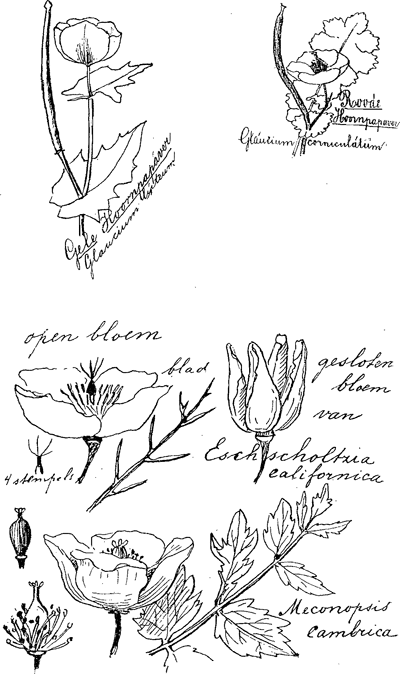 Gele Hoornpapaver
Glaucium luteum
Roode
Hoornpapaver
Glaucium corniculatum
open bloem
blad
4 stempels
gesloten
bloem
van
Eschscholtzia
californica
Meconopsis
Cambrica